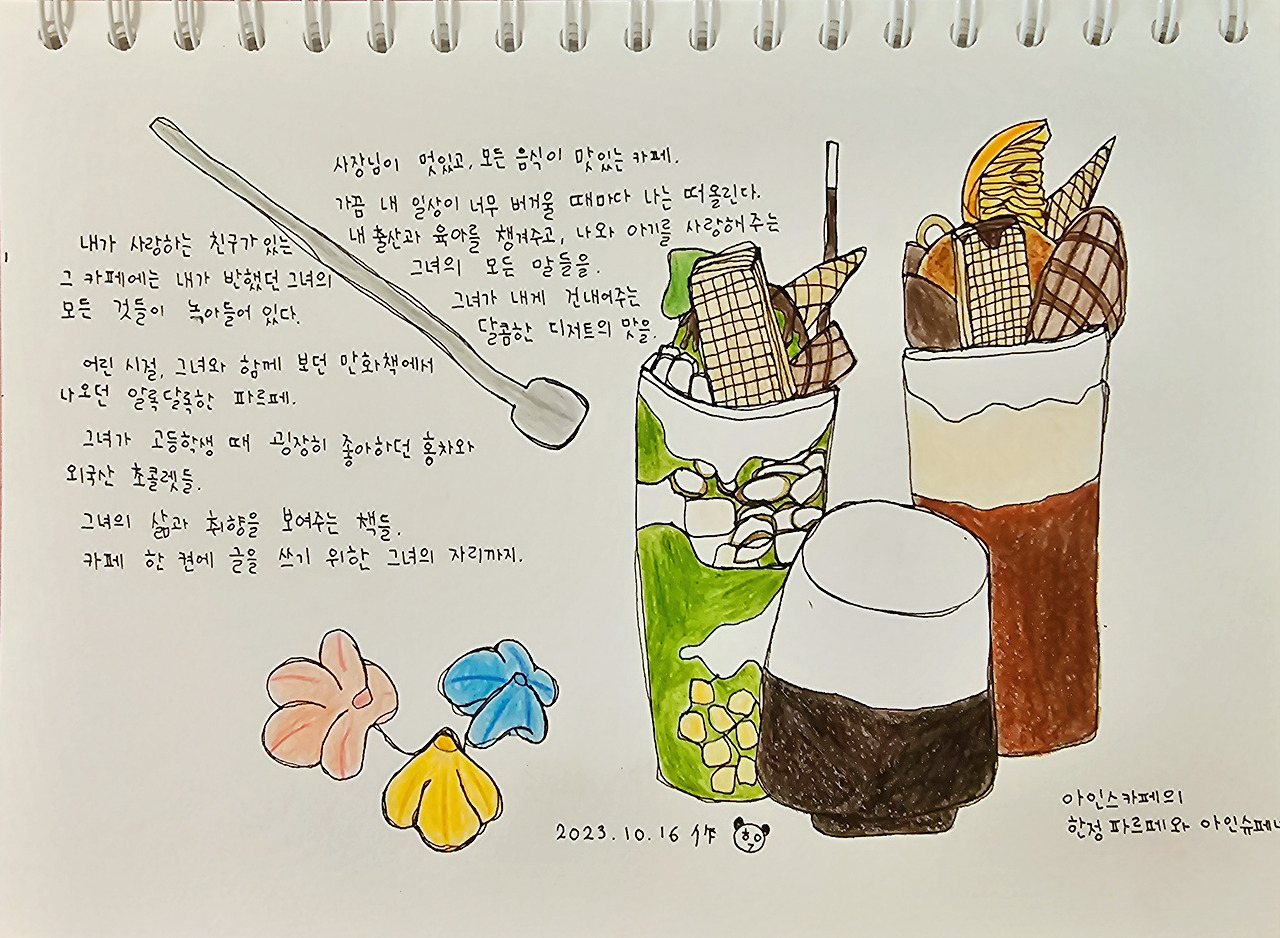 사장님이 멋있고, 모든 음식이 맛있는 카페.
가끔 내 일상이 너무 버거울 때마다 나는 떠올린다.
내 출산과 육아를 챙겨주고, 나와 아기를 사랑해 주는
그녀의 모든 말들을.
그녀가 내게 건내어주는
달콤한 디저트의 맛을.
내가 사랑하는 친구가 있는
그 카페에는 내가 반했던 그녀의
모든 것들이 녹아들어 있다.
어린 시절, 그녀와 함께 보던 만화책에서
나오던 알록달록한 파르페.
그녀가 고등학생 때 굉장히 좋아하던 홍차와
외국산 초콜렛들.
그녀의 삶과 취향을 보여주는 책들.
카페 한 켠에 글을 쓰기 위한 그녀의 자리까지.
2023.10.16 作
아인스카페의
한정 파르페와 아인슈페너